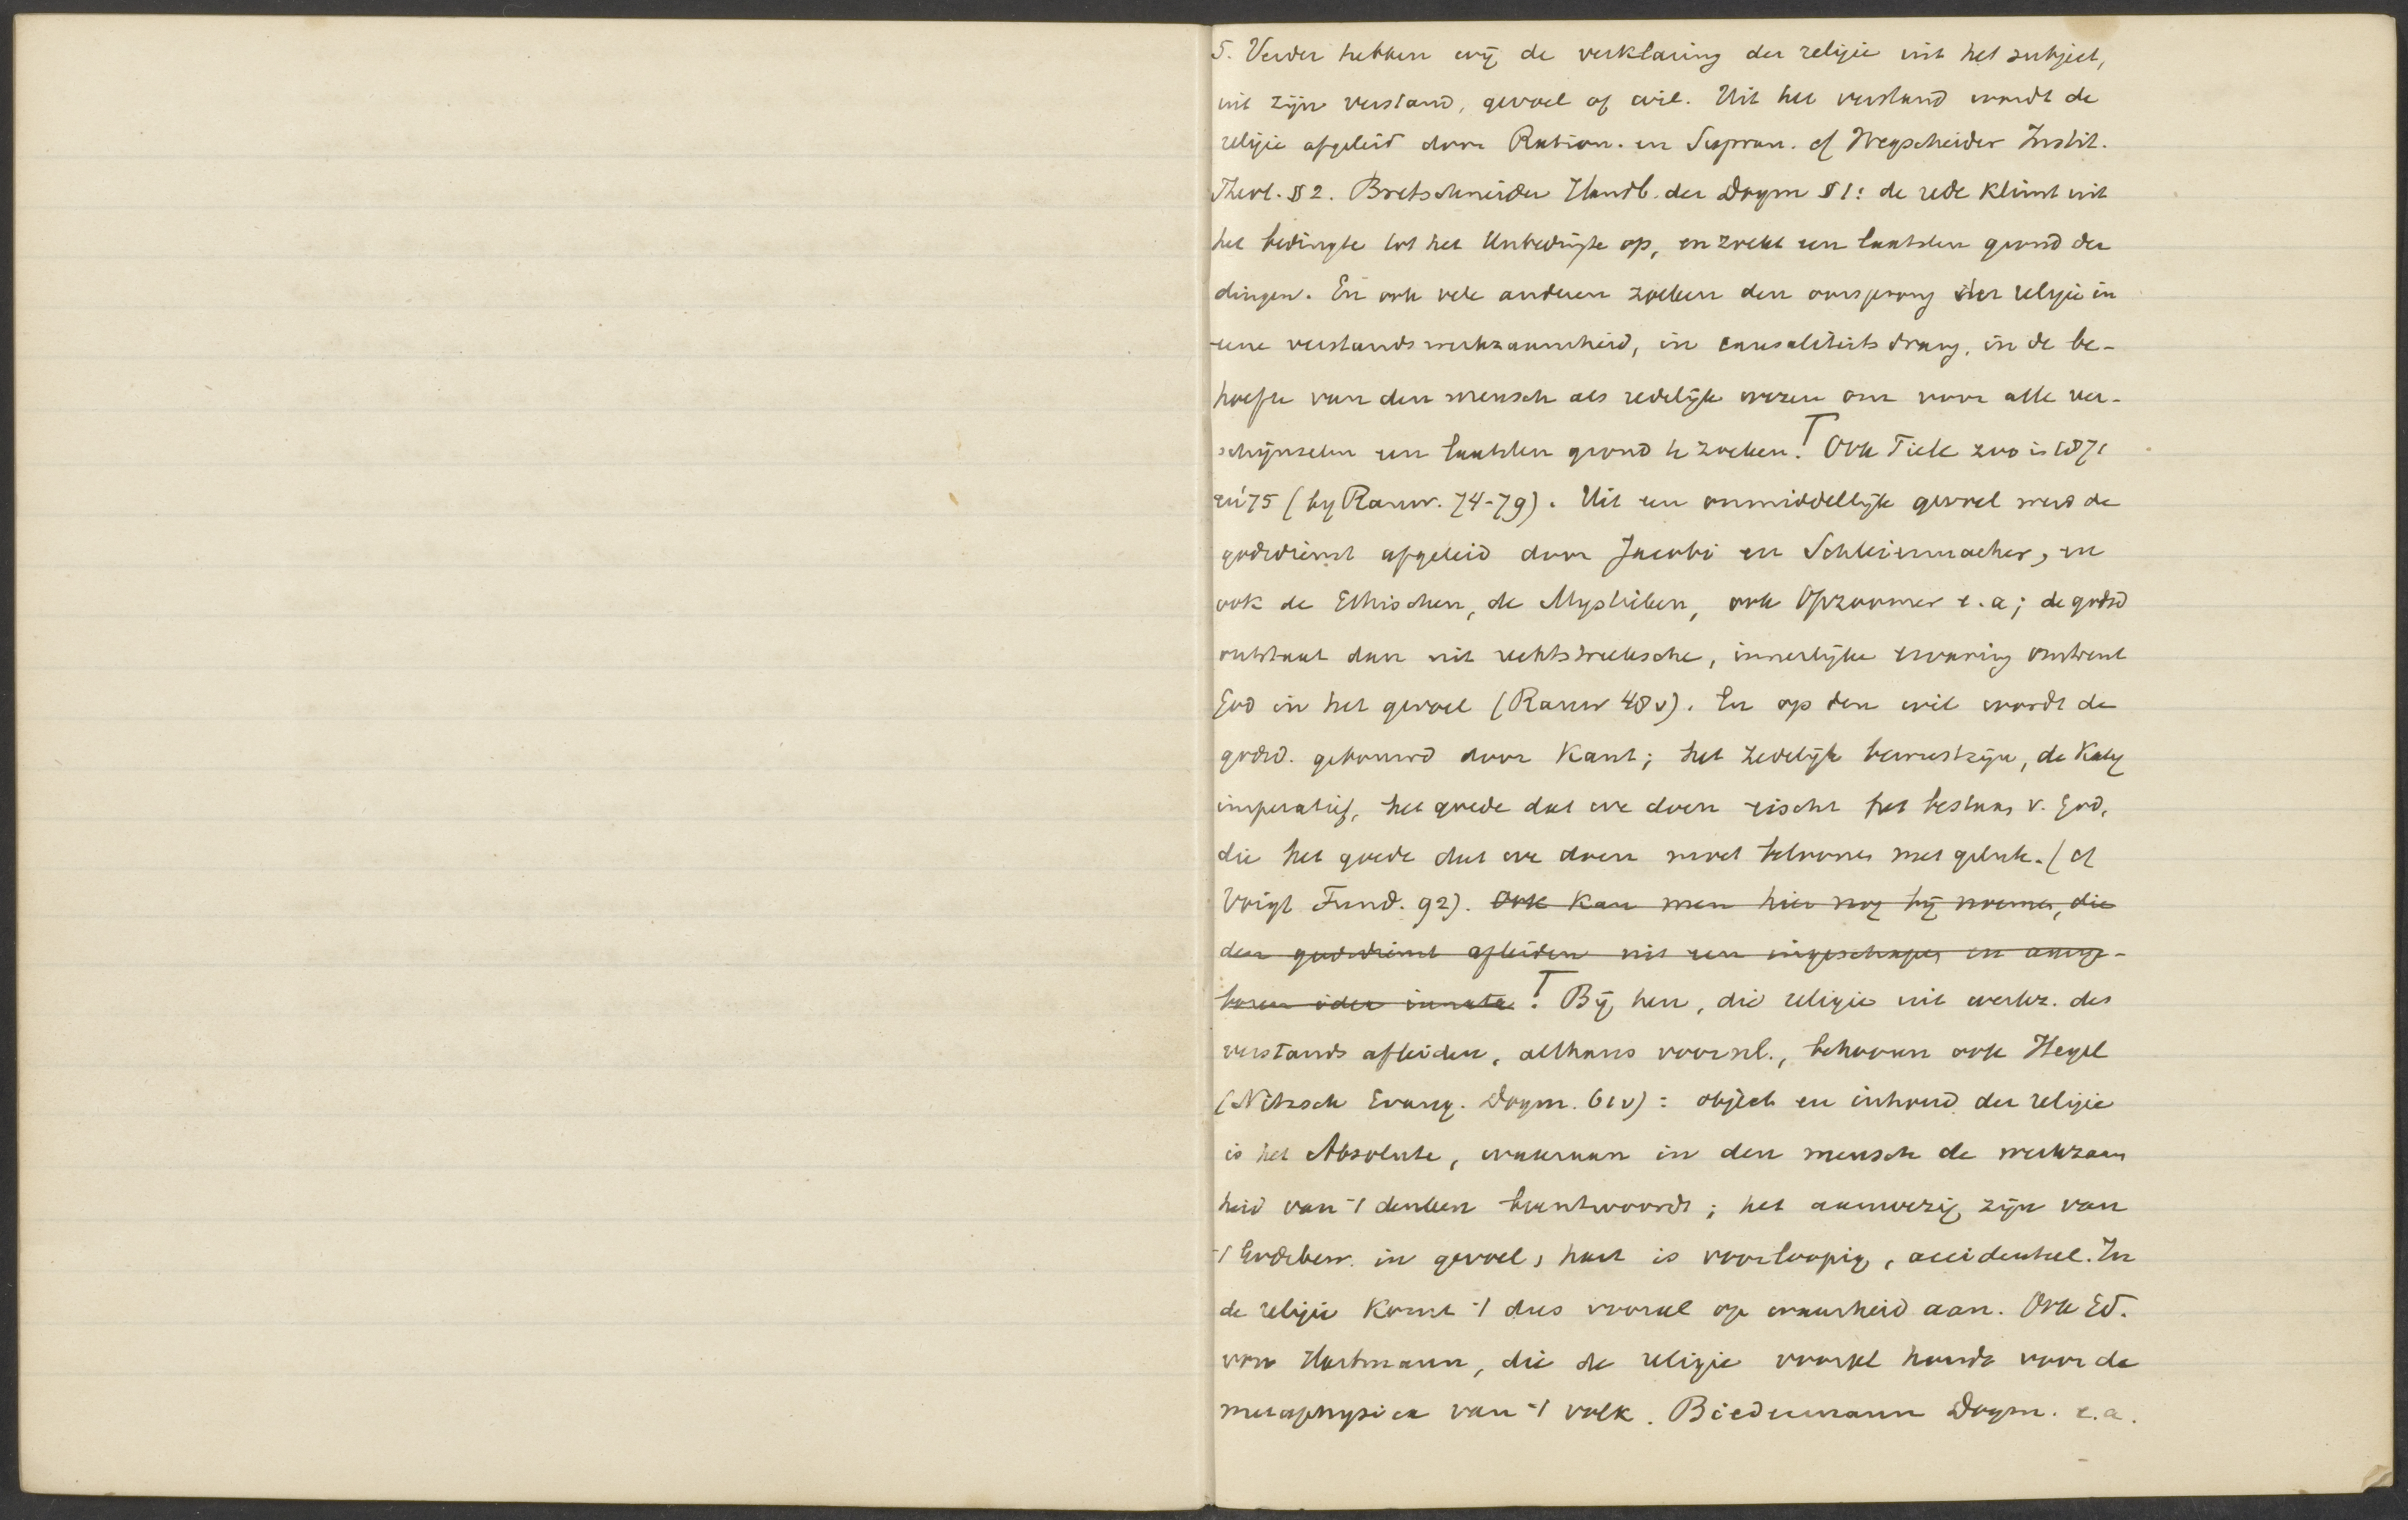 5. Verder hebben wij de verklaring der religie uit het subject,
uit zijn verstand, gevoel of wil. Uit het verstand wordt de
religie afgeleid door Ration. en Supran. cf Wegscheider Instit.
Theol. § 2. Bretschneider Handb. der Dogm § 1: de rede klimt uit
het bedingte tot het Unbedingte op, en zoekt een laatsten grond der
dingen. En ook vele anderen zoeken den oorsprong der religie in
eene verstandswerkzaamheid, in causaliteitsdrang, in de be-
hoefte van den mensch als redelijk wezen om voor alle ver-
schijnselen een laatsten grond te zoeken. ⊤ Ook Tiele zoo in 1871
en '75 (bij Rauw. 74-79). Uit een onmiddellijk gevoel werd de
godsdienst afgeleid door Jacobi en Schleiermacher, en
ook de Ethischen, de Mystieken, ook Opzoomer e.a; de godsd
ontstaat dan uit rechtstreeksche, innerlijke ervaring omtrent
God in het gevoel (Rauw 48v). En op den wil wordt de
godsd. gebouwd door Kant; het zedelijk bewustzijn, de Kateg
imperatief, het goede dat we doen eischt het bestaan v. God,
die het goede dat we doen moet beloonen met geluk. (cf
Voigt Fund. 92). Ook kan men hier nog bij noemen, die
den godsdienst afleiden uit een ingeschapen en aange-
boren idea innata. ⊤ Bij hen, die religie uit werkz. des
verstands afleiden, althans voornl., behooren ook Hegel
(Nitzsch Evang. Dogm. 61v): object en inhoud der religie
is het Absolute, waaraan in den mensch de werkzaam
heid van 't denken beantwoordt; het aanwezig zijn van
't Godsbew. in gevoel, hart is voorloopig, accidenteel. In
de religie komt 't dus vooral op waarheid aan. Ook Ed.
von Hartmann, die de religie vooral houdt voor de
metaphysica van 't volk. Biedermann Dogm. e.a.